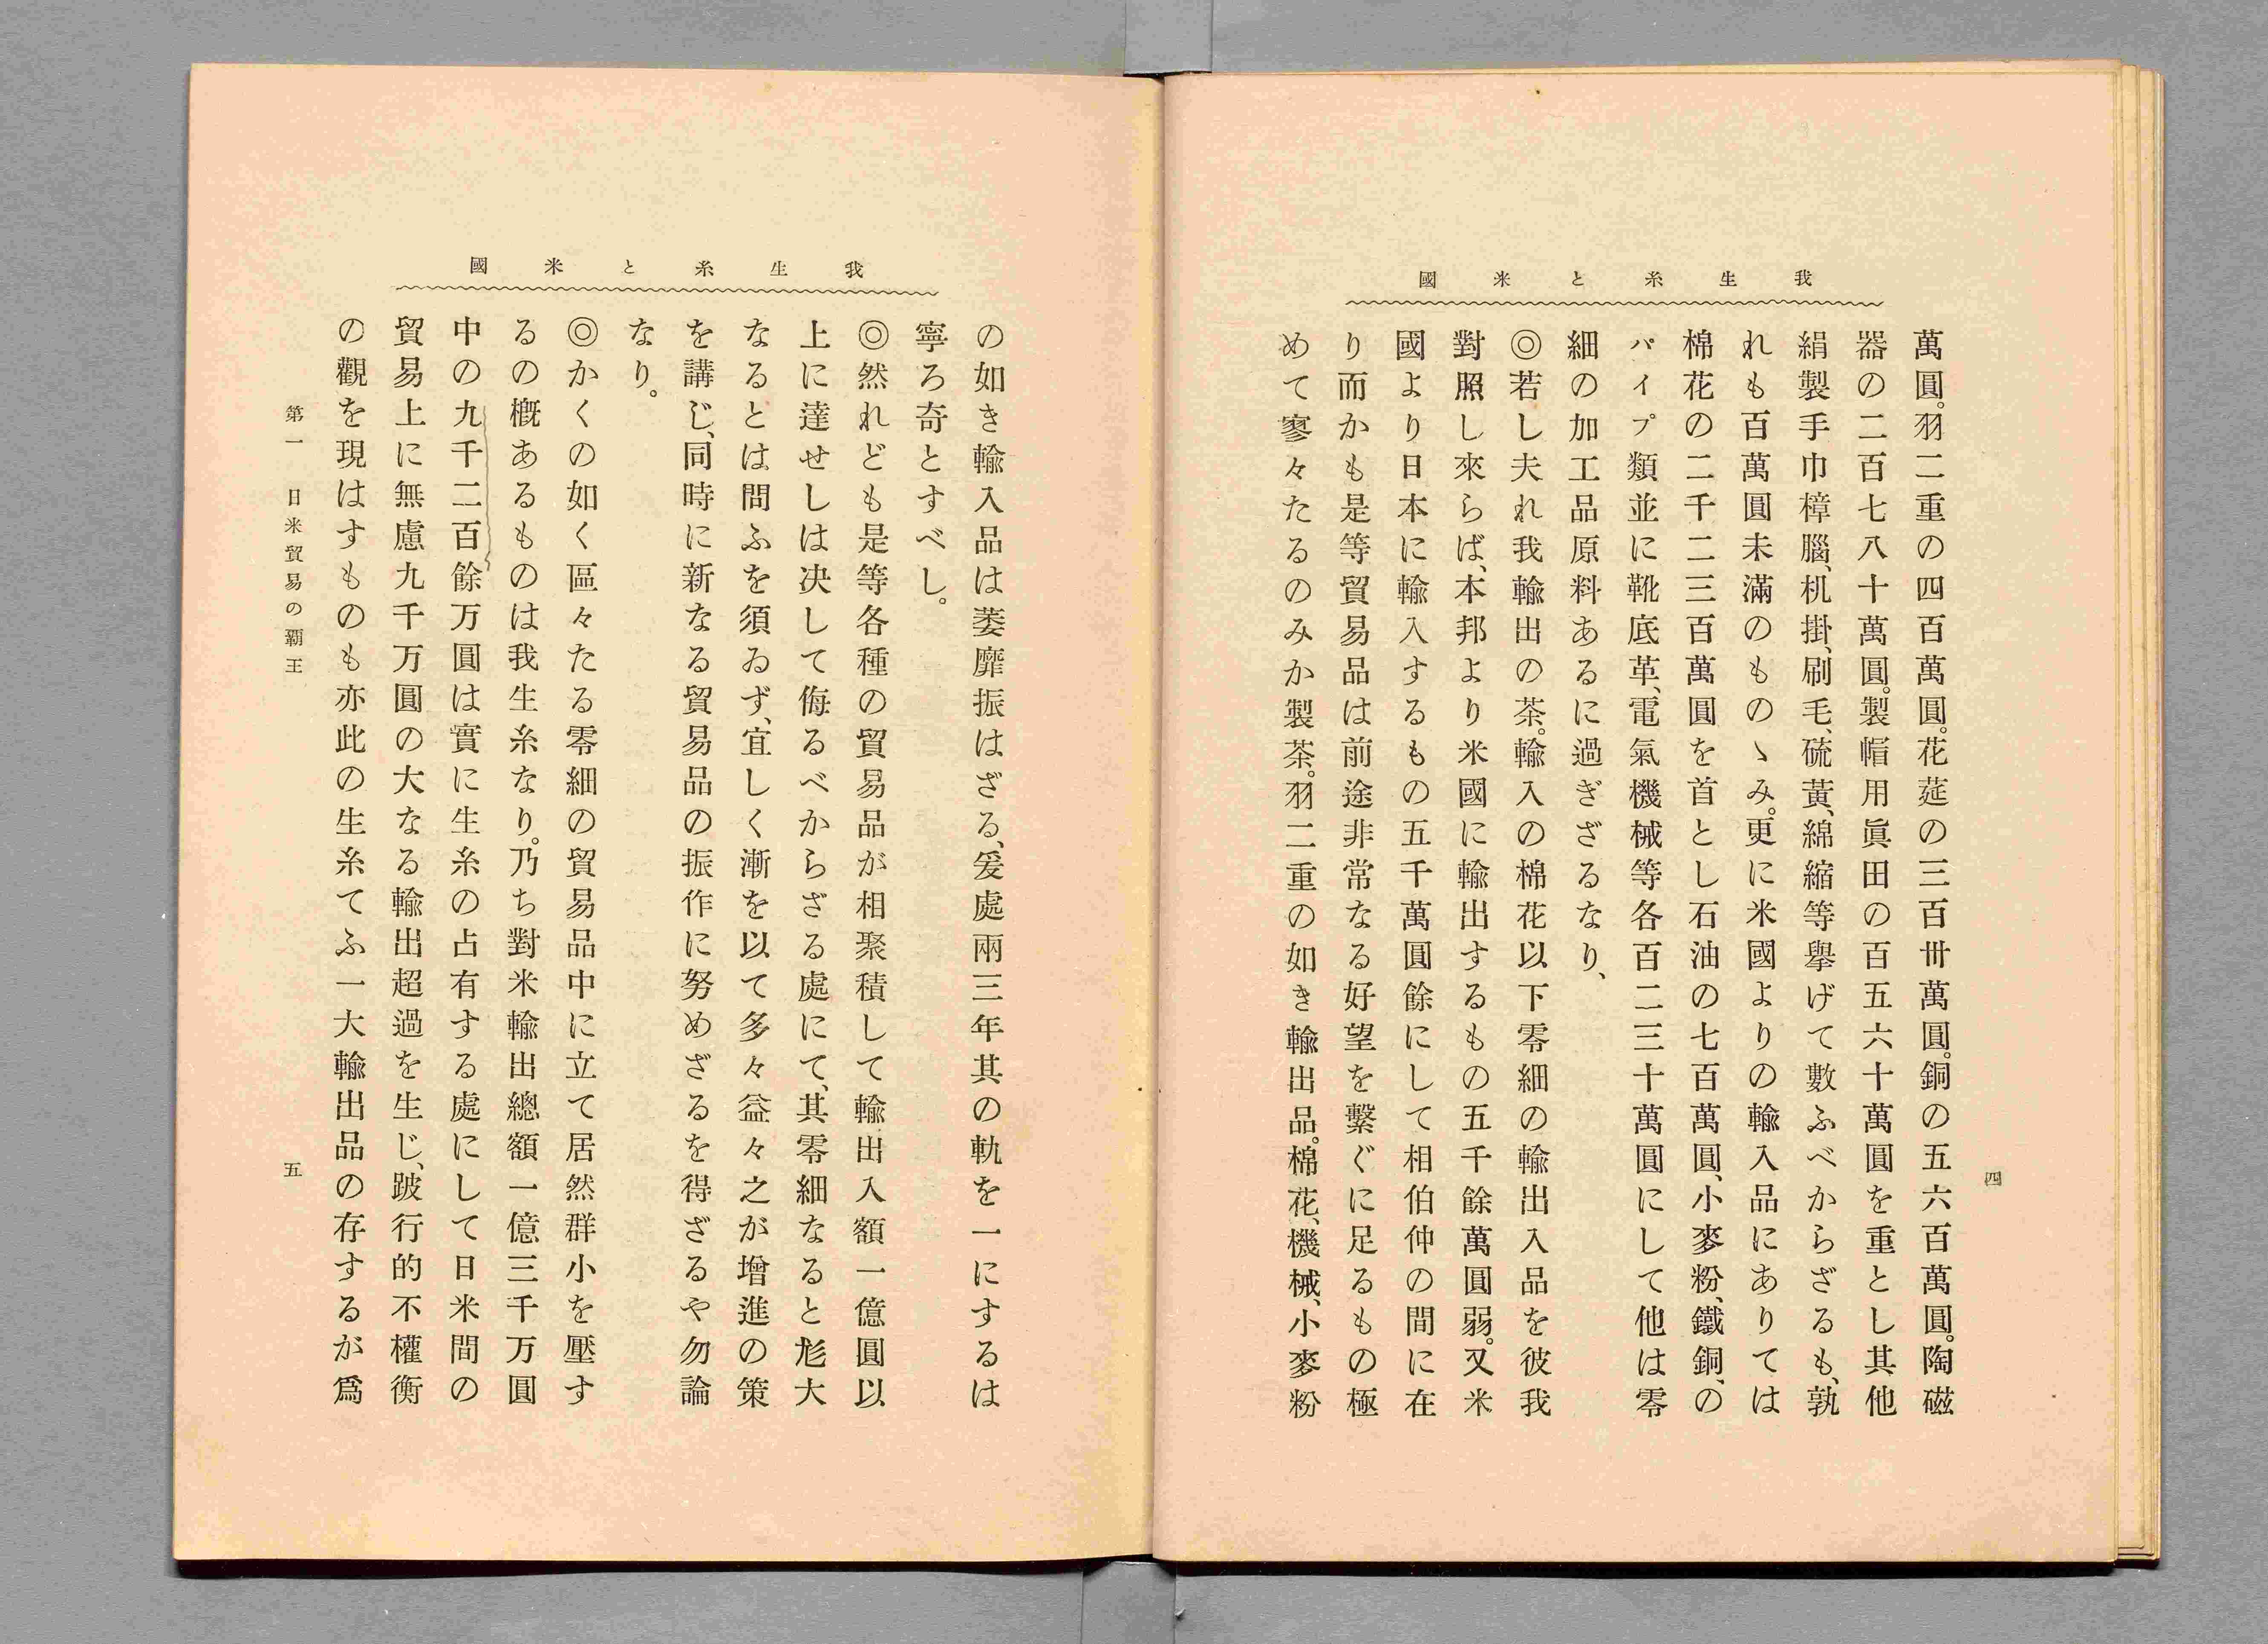 我生糸と米國
四
萬圓。羽二重の四百萬圓。花莚の三百卅萬圓。銅の五六百萬圓。陶磁
器の二百七八十萬圓。製帽用眞田の百五六十萬圓を重とし其他
絹製手巾樟腦、机掛、刷毛、硫黃、綿縮等擧げて數ふべからざるも、孰
れも百萬圓未滿のものゝみ。更に米國よりの輸入品にありては
棉花の二千二三百萬圓を首とし石油の七百萬圓、小麥粉、鐵銅、の
パイプ類並に靴底革、電氣機械等各百二三十萬圓にして他は零
細の加工品原料あるに過ぎざるなり、
◎若し夫れ我輸出の茶。輸入の棉花以下零細の輸出入品を彼我
對照し來らば、本邦より米國に輸出するもの五千餘萬圓弱。又米
國より日本に輸入するもの五千萬圓餘にして相伯仲の間に在
り而かも是等貿易品は前途非常なる好望を繫ぐに足るもの極
めて寥々たるのみか製茶。羽二重の如き輸出品。棉花、機械、小麥粉
我生糸と米國
の如き輸入品は萎靡振はざる、爰處兩三年其の軌を一にするは
寧ろ奇とすべし。
◎然れども是等各種の貿易品が相聚積して輸出入額一億圓以
上に達せしは決して侮るべからざる處にて、其零細なると尨大
なるとは問ふを須ゐず、宜しく漸を以て多々益々之が增進の策
を講じ、同時に新なる貿易品の振作に努めざるを得ざるや勿論
なり。
◎かくの如く區々たる零細の貿易品中に立て居然群小を壓す
るの槪あるものは我生糸なり。乃ち對米輸出總額一億三千万圓
中の九千二百餘万圓は實に生糸の占有する處にして日米間の
貿易上に無慮九千万圓の大なる輸出超過を生じ、跛行的不權衡
の觀を現はすものも亦此の生糸てふ一大輸出品の存するが爲
第一 日米貿易の覇王
五